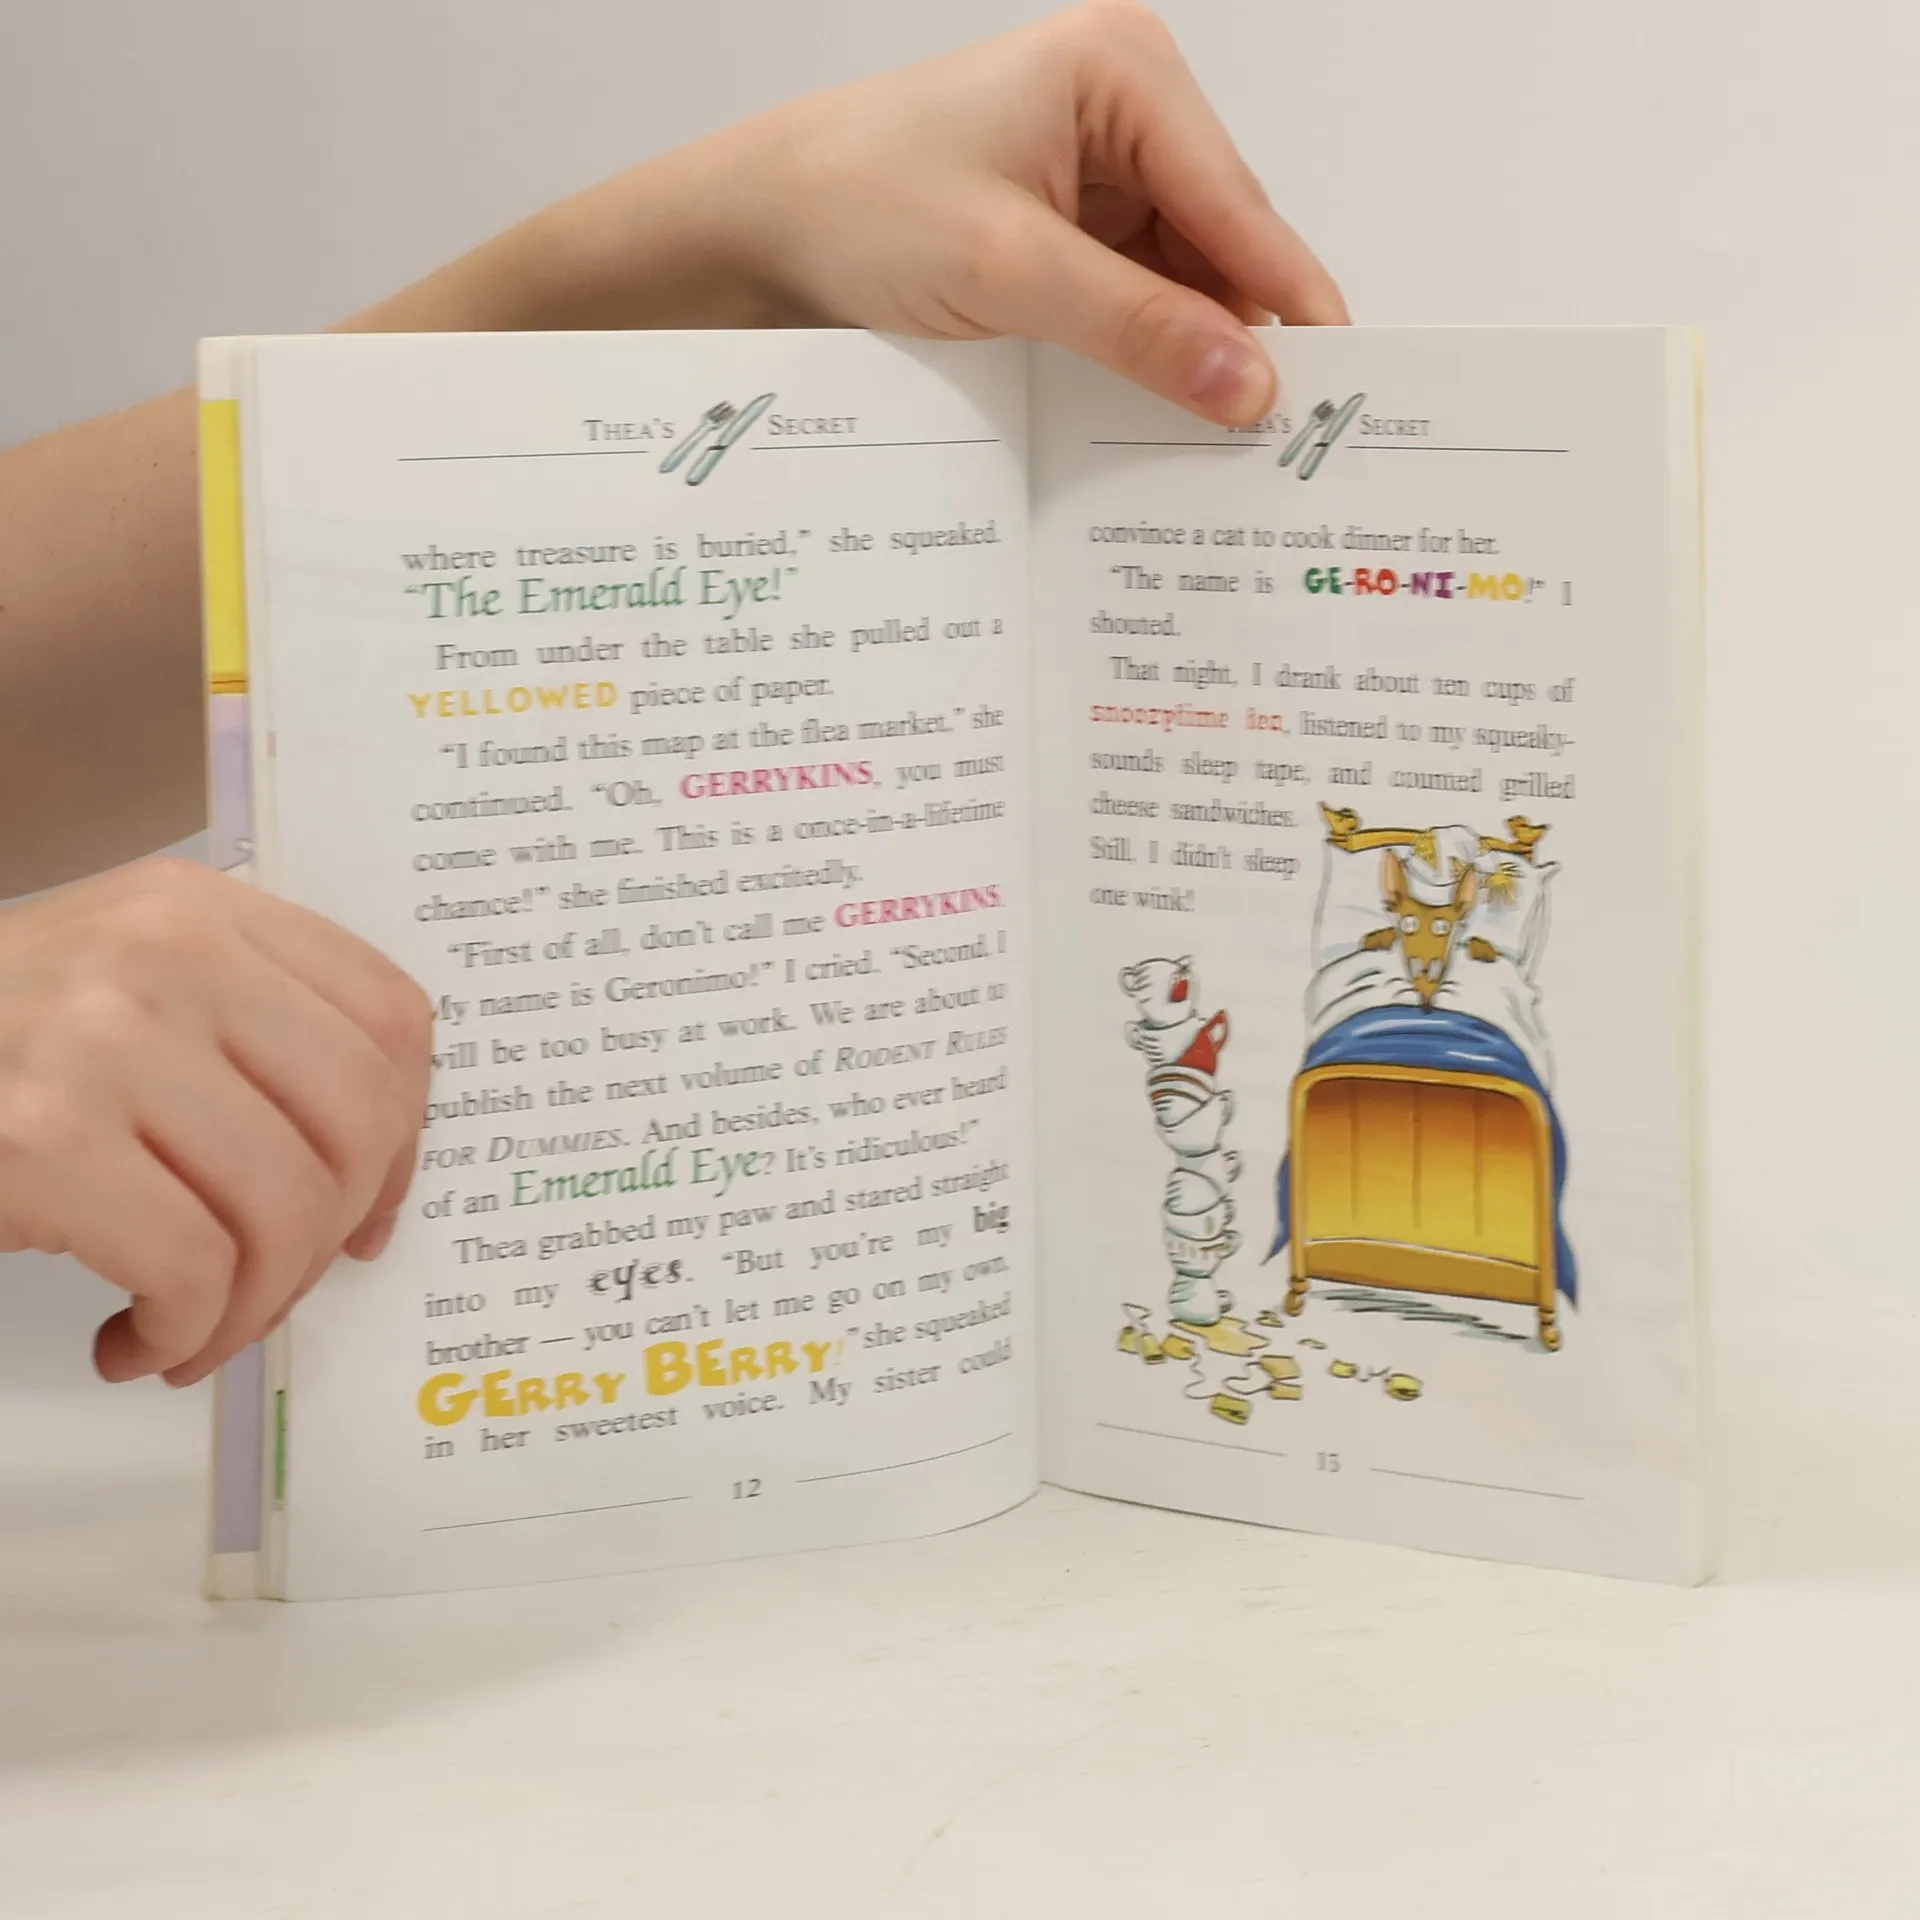 THEA'S SECRET
where treasure is buried," she squeaked.
"The Emerald Eye!"
From under the table she pulled out a
YELLOWED piece of paper.
"I found this map at the flea market," she
continued. "Oh, GERRYKINS, you must
come with me. This is a once-in-a-lifetime
chance!" she finished excitedly.
"First of all, don't call me GERRYKINS.
My name is Geronimo!" I cried. "Second, I
will be too busy at work. We are about to
publish the next volume of RODENT RULES
FOR DUMMIES. And besides, who ever heard
of an Emerald Eye? It's ridiculous!"
Thea grabbed my paw and stared straight
into my eyes. "But you're my big
brother — you can't let me go on my own,
GERRY BERRY!" she squeaked
in her sweetest voice. My sister could
12
THEA'S SECRET
convince a cat to cook dinner for her.
"The name is GE-RO-NI-MO!" I
shouted.
That night, I drank about ten cups of
snoozytime tea, listened to my squeaky-
sounds sleep tape, and counted grilled
cheese sandwiches.
Still, I didn't sleep
one wink!
13